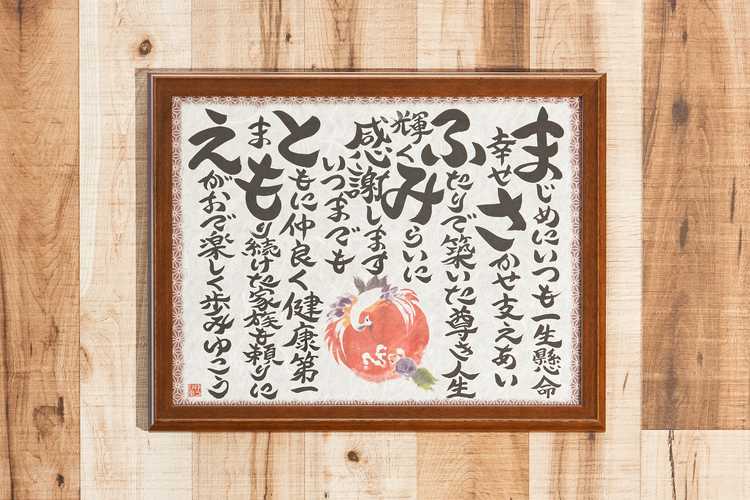 まじめにいつも一生懸命
幸せさかせ支えあい
ふたりで築いた尊き人生
輝くみらいに
感謝します
いつまでも
ともに仲良く健康第一
まもり続けた家族を頼りに
えがおで楽しく歩みゆこう